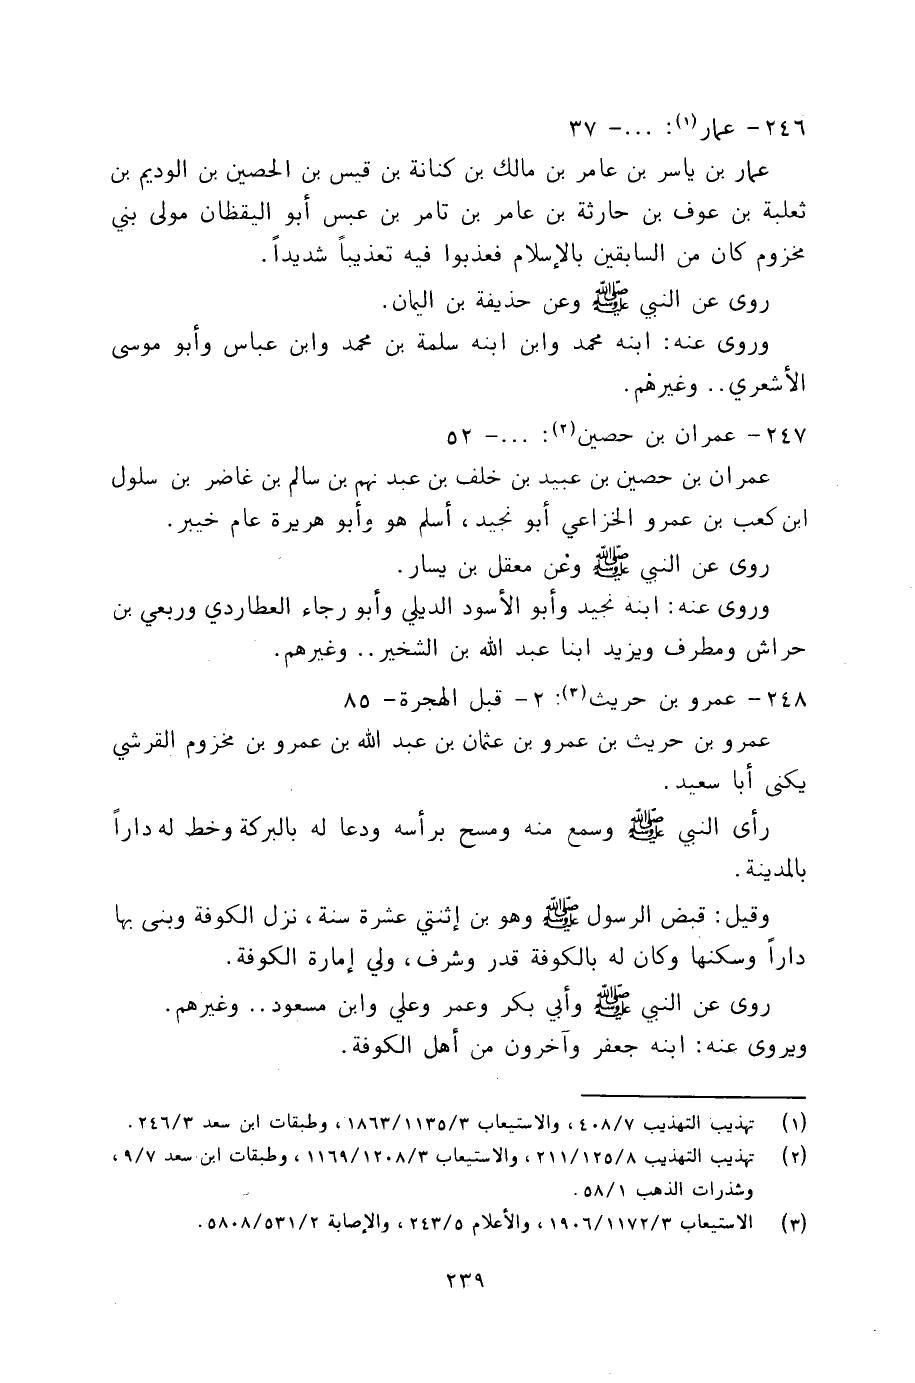 ٢٤٦- عمار(١): ...- ٣٧
عمار بن ياسر بن عامر بن مالك بن كنانة بن قيس بن الحصين بن الوديم بن
ثعلبة بن عوف بن حارثة بن عامر بن تامر بن عبس أبو اليقظان مولى بني
مخزوم كان من السابقين بالإسلام فعذبوا فيه تعذيباً شديداً.
روى عن النبي ﷺ وعن حذيفة بن اليمان.
وروى عنه: ابنه محمد وابن ابنه سلمة بن محمد وابن عباس وأبو موسى
الأشعري.. وغيرهم.
٢٤٧- عمران بن حصين(٢): ...- ٥٢
عمران بن حصين بن عبيد بن خلف بن عبد نهم بن سالم بن غاضر بن سلول
ابن كعب بن عمرو الخزاعي أبو نجيد، أسلم هو وأبو هريرة عام خيبر.
روى عن النبي ﷺ وعن معقل بن يسار.
وروى عنه: ابنه نجيد وأبو الأسود الديلي وأبو رجاء العطاردي وربعي بن
حراش ومطرف ويزيد ابنا عبد الله بن الشخير.. وغيرهم.
٢٤٨- عمرو بن حريث(٣): ٢- قبل الهجرة- ٨٥
عمرو بن حريث بن عمرو بن عثمان بن عبد الله بن عمرو بن مخزوم القرشي
يكنى أبا سعيد.
رأى النبي ﷺ وسمع منه ومسح برأسه ودعا له بالبركة وخط له داراً
بالمدينة.
وقيل: قبض الرسول ﷺ وهو بن إثنتي عشرة سنة، نزل الكوفة وبنى بها
داراً وسكنها وكان له بالكوفة قدر وشرف، ولي إمارة الكوفة.
روى عن النبي ﷺ وأبي بكر وعمر وعلي وابن مسعود.. وغيرهم.
ويروى عنه: ابنه جعفر وآخرون من أهل الكوفة.
(١) تهذيب التهذيب ٤٠٨/٧، والاستيعاب ١٨٦٣/١١٣٥/٣، وطبقات ابن سعد ٢٤٦/٣.
(٢) تهذيب التهذيب ٢١١/١٢٥/٨، والاستيعاب ١١٦٩/١٢٠٨/٣، وطبقات ابن سعد ٩/٧،
وشذرات الذهب ٥٨/١.
(٣) الاستيعاب ١٩٠٦/١١٧٢/٣، والأعلام ٢٤٣/٥، والإصابة ٥٨٠٨/٥٣١/٢.
٢٣٩